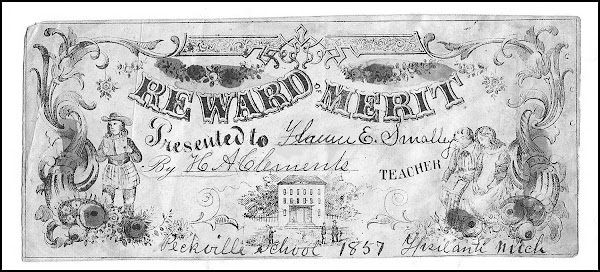 REWARD OF MERIT
Presented to E. Smalley
By H A Clements TEACHER
Peckville School 1857 Ypsilanti Mich